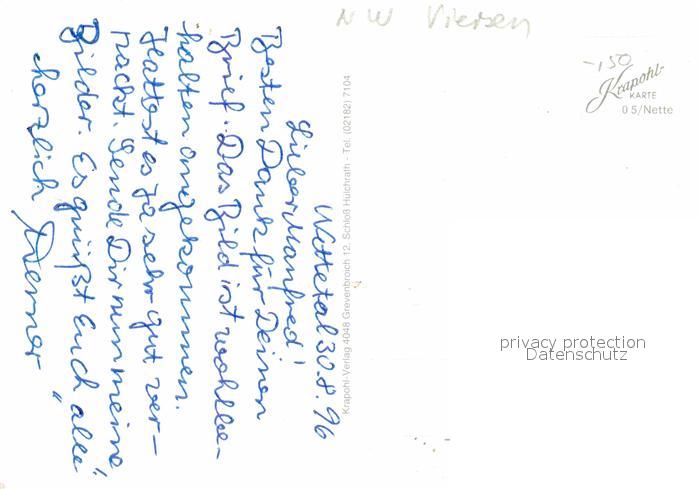 NW Viersen
-,50
Krapohl-
KARTE
0 5/Nette
Krapohl-Verlag 4048 Grevenbroich 12, Schloß Hülchrath - Tel. (02182) 7104
30.8.96
Lieber Manfred!
Besten Dank für Deinen
Brief. Das Bild ist wohlbe-
halten angekommen.
Hattest es ja sehr gut ver-
packt. Sende Dir nun meine
Bilder. Es grüßt Euch alle
herzlich Werner
privacy protection
Datenschutz